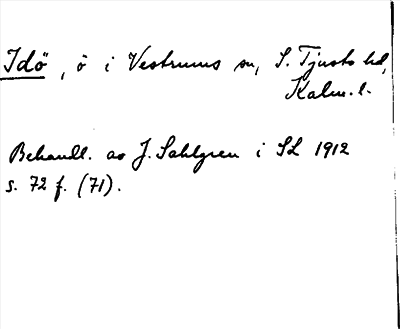 Idö, ö i Vestrums sn, S. Tjusts hd,
Kalm. l.
Behandl. av J. Sahlgren i SL 1912
s. 72 f. (71).